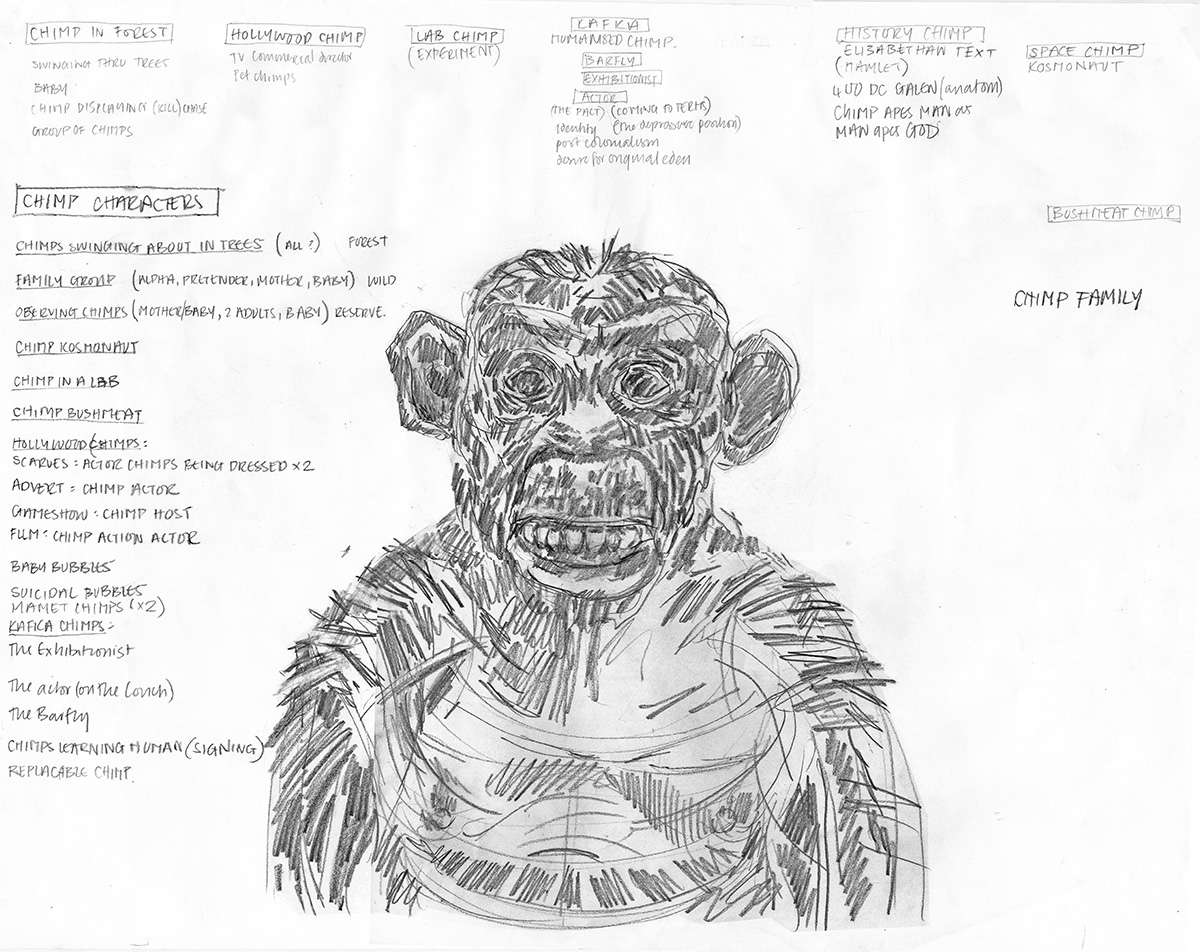 CHIMP IN FOREST
SWINGING THRU TREES
BABY
CHIMP DISPLAYING (KILL) CHASE
GROUP OF CHIMPS
HOLLYWOOD CHIMP
TV Commercial director
Pet chimps
LAB CHIMP
(EXPERIMENT)
KAFKA
HUMANISED CHIMP.
BARFLY
EXHIBITIONIST
ACTOR
(THE PACT) (COMING TO TERMS)
identity (the depressive position)
post colonialism
desire for original eden
HISTORY CHIMP
ELISABETHAN TEXT
(HAMLET)
400 DC GALEN (anatom)
CHIMP APES MAN as
MAN apes GOD
SPACE CHIMP
KOSMONAUT
BUSHMEAT CHIMP
CHIMP FAMILY
CHIMP CHARACTERS
CHIMPS SWINGING ABOUT IN TREES (ALL?) FOREST
FAMILY GROUP (ALPHA, PRETENDER, MOTHER, BABY) WILD
OBERVING CHIMPS (MOTHER/BABY, 2 ADULTS, BABY) RESERVE.
CHIMP KOSMONAUT
CHIMP IN A LAB
CHIMP BUSHMEAT
HOLLYWOOD CHIMPS:
SCARVES: ACTOR CHIMPS BEING DRESSED x2
ADVERT: CHIMP ACTOR
GAMESHOW: CHIMP HOST
FILM: CHIMP ACTION ACTOR
BABY BUBBLES
SUICIDAL BUBBLES
MAMET CHIMPS (x2)
KAFKA CHIMPS:
The Exhibitionist
The actor (on the Couch)
The Barfly
CHIMPS LEARNING HUMAN (SIGNING)
REPLACABLE CHIMP.